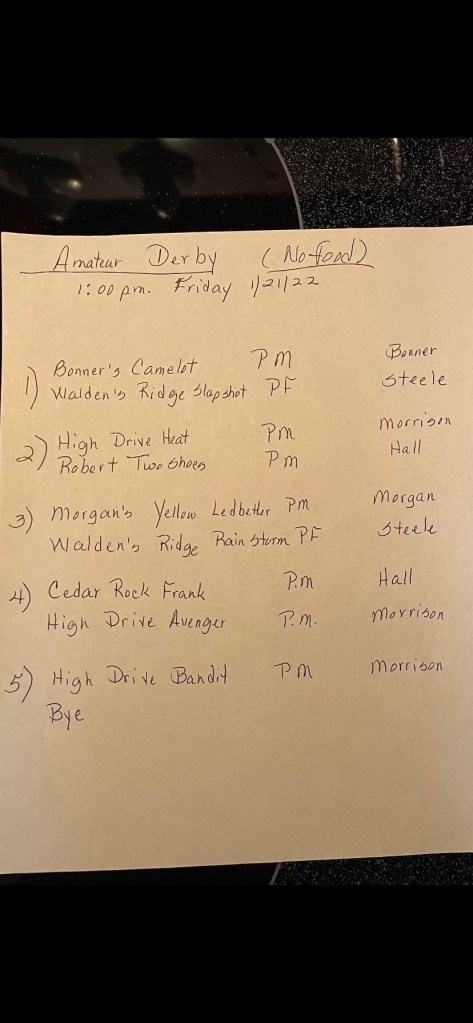 Amateur Derby (No food)
1:00 pm. Friday 1/21/22
1) Bonner's Camelot PM Bonner
Walden's Ridge Slapshot PF Steele
2) High Drive Heat PM Morrison
Robert Two Shoes PM Hall
3) Morgan's Yellow Ledbetter PM Morgan
Walden's Ridge Rain Storm PF Steele
4) Cedar Rock Frank P.M Hall
High Drive Avenger P.M. Morrison
5) High Drive Bandit PM Morrison
Bye